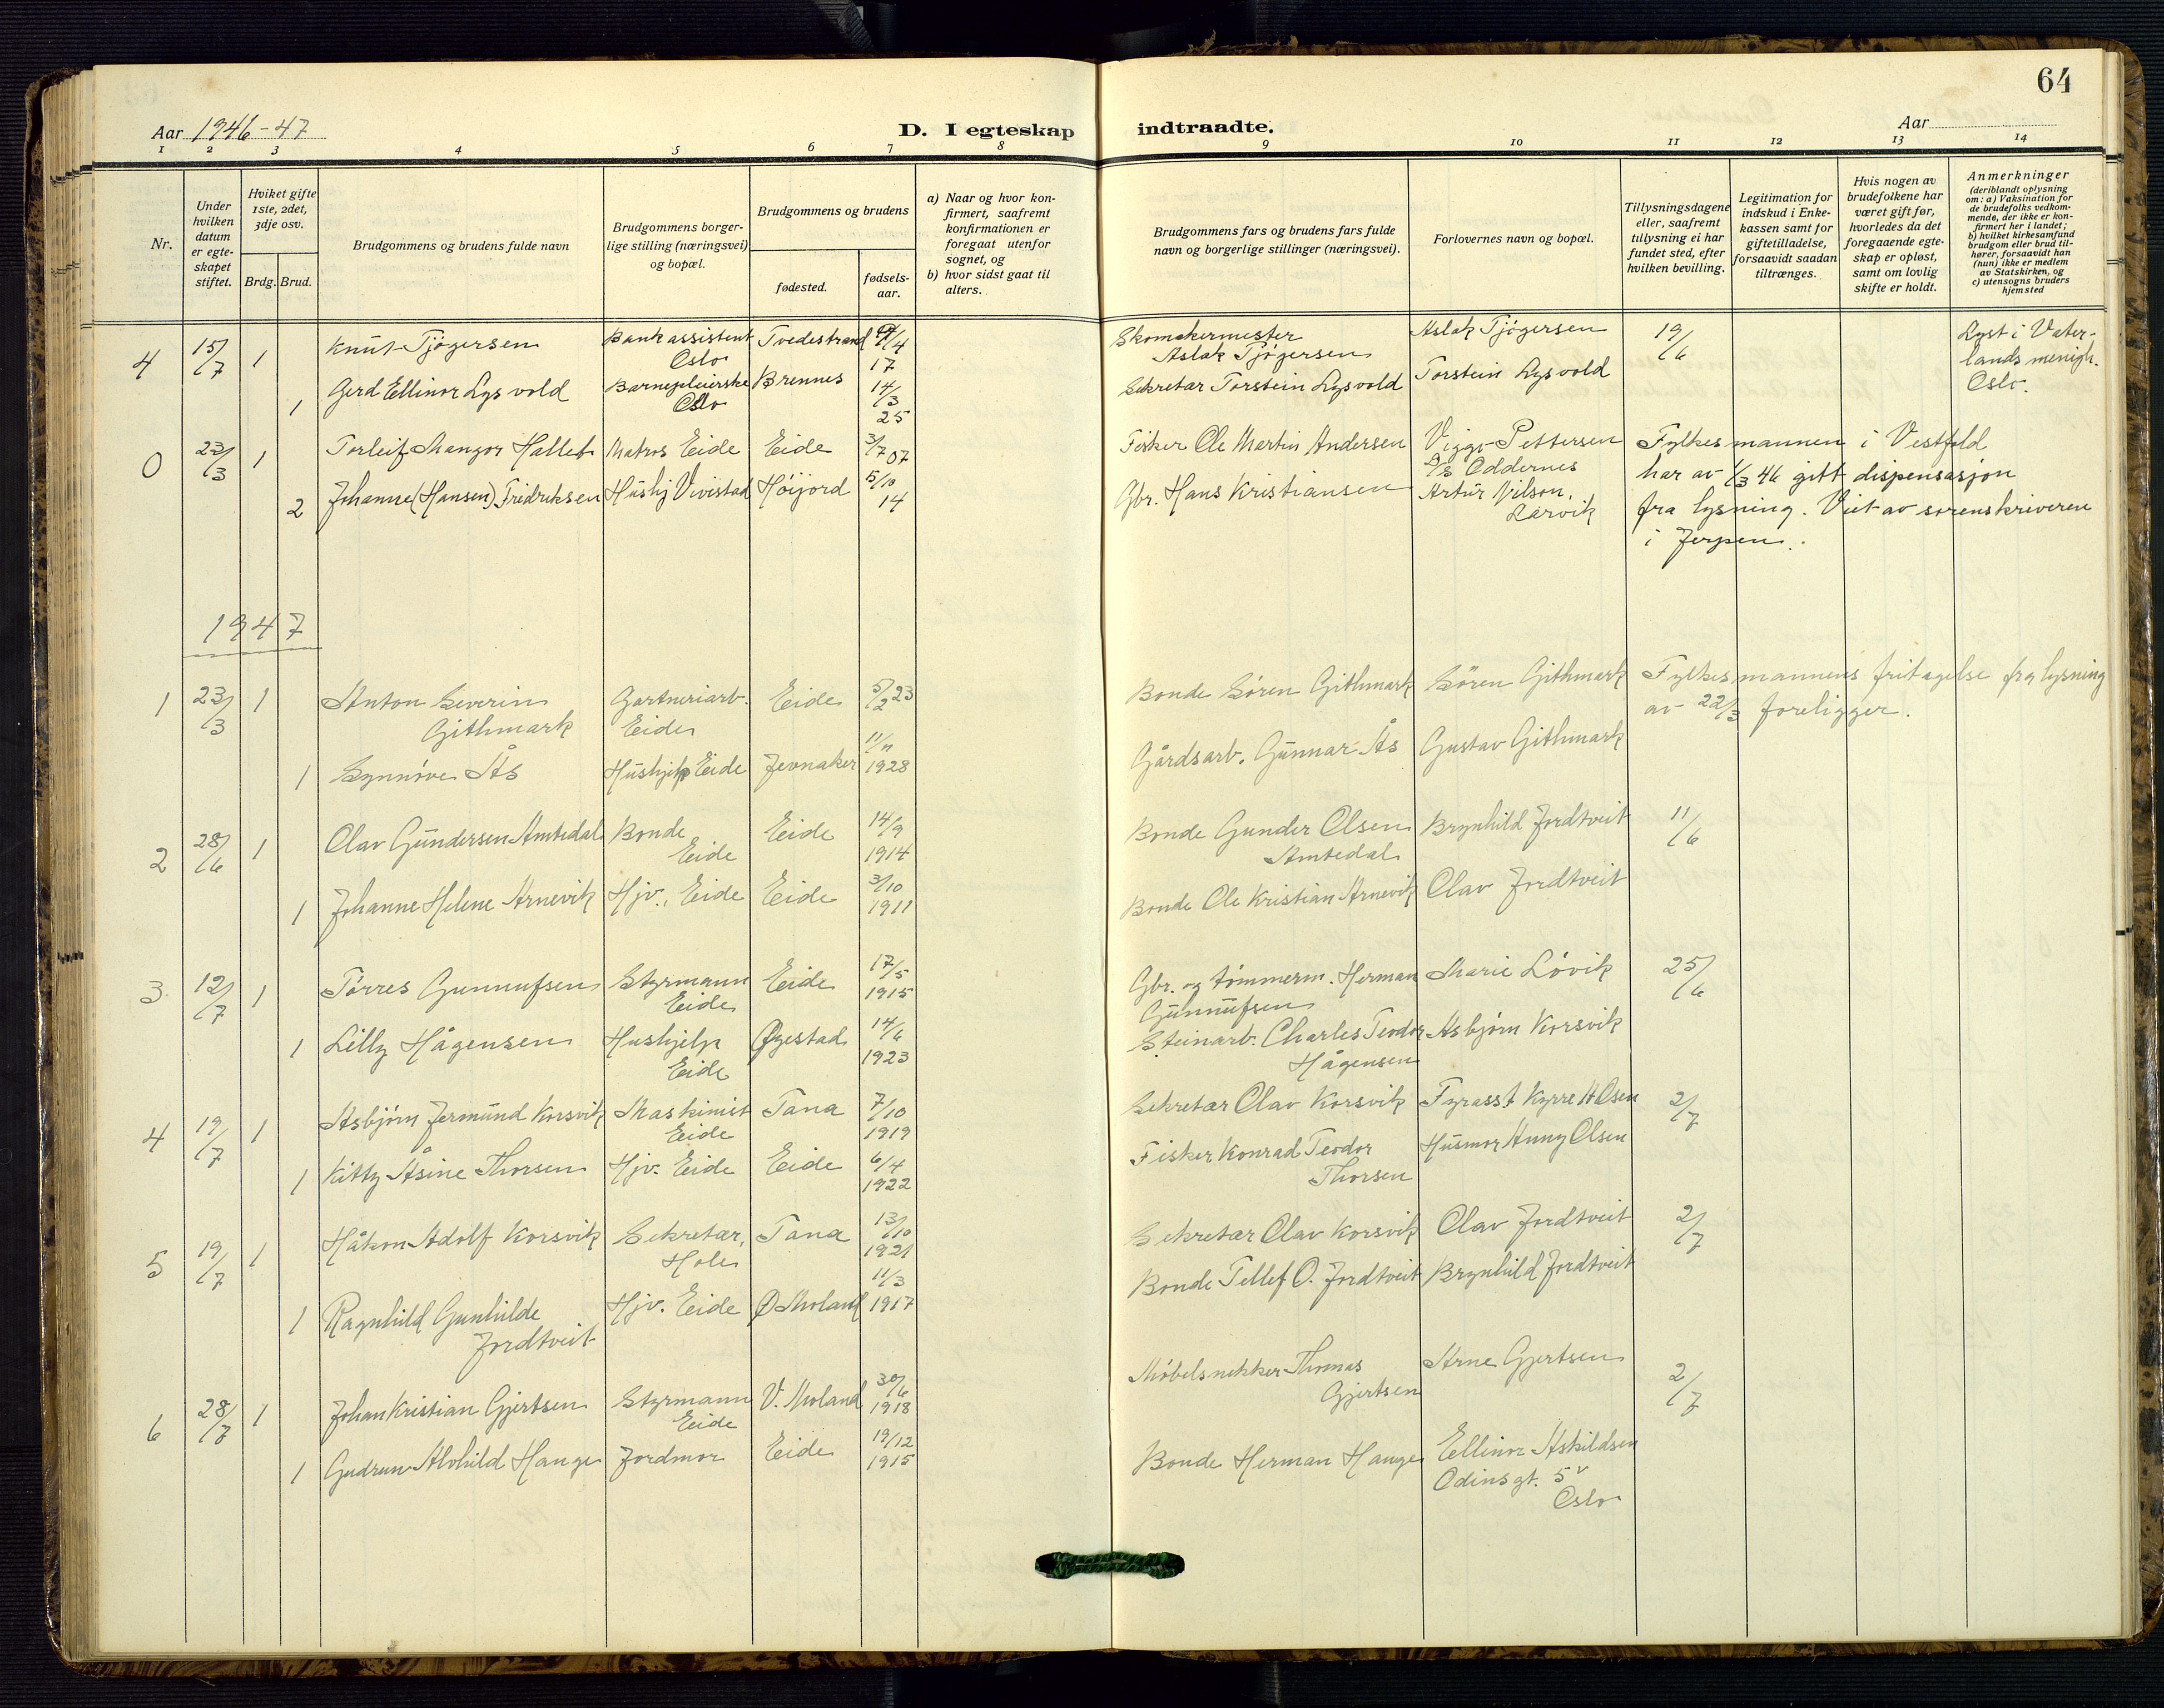 64
Aar 1946-47
D. I egteskap indtraadte.
Aar
1 2 3 4 5 6 7 8 9 10 11 12 13 14
Nr.
Under
hvilken
datum
er egte-
skapet
stiftet.
Hviket gifte
1ste, 2det,
3dje osv.
Brdg. Brud.
Brudgommens og brudens fulde navn
Brudgommens borger-
lige stilling (næringsvei)
og bopæl.
Brudgommens og brudens
fødested.
fødsels-
aar.
a) Naar og hvor kon-
firmert, saafremt
konfirmationen er
foregaat utenfor
sognet, og
b) hvor sidst gaat til
alters.
Brudgommens fars og brudens fars fulde
navn og borgerlige stillinger (næringsvei).
Forlovernes navn og bopæl.
Tillysningsdagene
eller, saafremt
tillysning ei har
fundet sted, efter
hvilken bevilling.
Legitimation for
indskud i Enke-
kassen samt for
giftetilladelse,
forsaavidt saadan
tiltrænges.
Hvis nogen av
brudefolkene har
været gift før,
hvorledes da det
foregaaende egte-
skap er opløst,
samt om lovlig
skifte er holdt.
Anmerkninger
(deriblandt oplysning
om: a) Vaksination for
de brudefolks vedkom-
mende, der ikke er kon-
firmert her i landet;
b) hvilket kirkesamfund
brudgom eller brud til-
hører, forsaavidt han
(hun) ikke er medlem
av Statskirken, og
c) utensogns bruders
hjemsted
4 15/7 1 Knut Tjøgersen Bankassistent Oslo Tvedestrand /4 17 Skomakermester Aslak Tjøgersen Aslak Tjøgersen 19/6 Lyst i Vater-
lands menigh.
Oslo.
1 Gerd Ellinor Lysvold Barnepleierske Oslo Brennes 14/3 25 Sekretær Torstein Lysvold Torstein Lysvold
0 23/3 1 Torleif Mangor Hallet Matros Eide Eide 3/7 07 Fisker Ole Martin Andersen Viggo Pettersen
D/S Oddernes Fylkesmannen i Vestfold
har av 1/3 46 gitt dispensasjon
2 Johanne (Hansen) Fridriksen Hushj Vivestad Høijord 5/10 14 Gbr. Hans Kristiansen Artur Nilson,
Larvik fra lysning. Viet av sorenskriveren
i Jerpen.
1947
1 23/3 1 Anton Severin
Githmark Gartneriarb.
Eide Eide 5/2 23 Bonde Søren Githmark Søren Githmark Fylkesmannens fritagelse fra lysning
av 22/3 foreligger.
1 Synnøve Ås Hushjelp Eide Jevnaker 11/11 1928 Gårdsarb. Gunnar Ås Gustav Githmark
2 28/6 1 Olav Gundersen Amtedal Bonde
Eide Eide 14/9 1914 Bonde Gunder Olsen
Amtedal Brynhild Jordtveit 11/6
1 Johanne Helene Arnevik Hjv., Eide Eide 3/10 1911 Bonde Ole Kristian Arnevik Olav Jordtveit
3 12/7 1 Tørres Gunnufsen Styrmann
Eide Eide 17/5 1915 Gbr. og tømmerm. Herman
Gunnufsen Marie Løvik 25/6
1 Lilly Hågensen Hushjelp
Eide Øyestad 14/6 1923 Steinarb. Charles Teodor
Hågensen Asbjørn Korsvik
4 19/7 1 Asbjørn Jermund Korsvik Maskinist
Eide Tana 7/10 1919 Sekretær Olav Korsvik Fyrasst. Kyrre H Olsen 2/7
1 Kitty Åsine Thorsen Hjv. Eide Eide 6/4 1922 Fisker Konrad Teodor
Thorsen Husmor Anny Olsen
5 19/7 1 Håkon Adolf Korsvik Sekretær,
Hole Tana 13/10 1921 Sekretær Olav Korsvik Olav Jordtveit 2/7
1 Ragnhild Gunhilde
Jordtveit Hjv. Eide Ø Moland 11/3 1917 Bonde Tellef O. Jordtveit Brynhild Jordtveit
6 28/7 1 Johan Kristian Gjertsen Styrmann
Eide V. Moland 30/6 1918 Møbelsnekker Thomas
Gjertsen Arne Gjertsen 2/7
1 Gudrun Alvhild Hauge Jordmor Eide 19/12 1915 Bonde Herman Hauge Ellinor Askildsen
Odinsgt. 5
Oslo